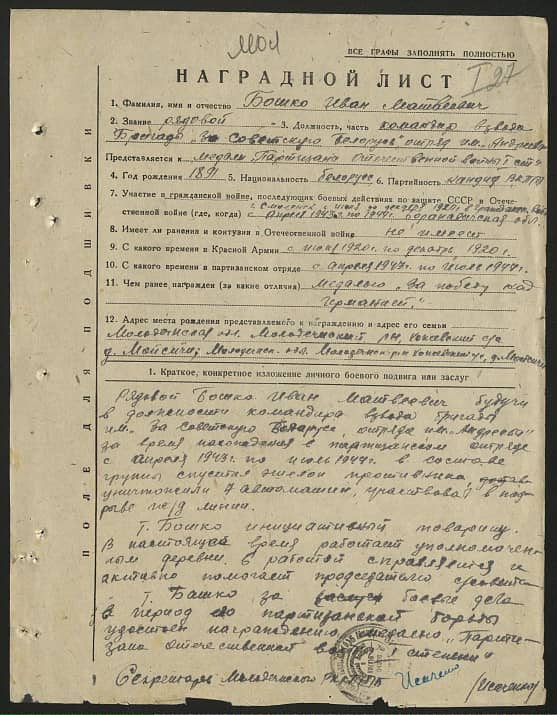 МОЧ
127
ВСЕ ГРАФЫ ЗАПОЛНЯТЬ ПОЛНОСТЬЮ
НАГРАДНОЙ ЛИСТ
1. Фамилия, имя и отчество Бошко Иван Матвеевич
2. Звание рядовой 3. Должность, часть командир взвода
Бригада "За Советскую Беларусь" отряд им. Андреева
Представляется к медали Партизана Отечественной войны I ст
4. Год рождения 1891 5. Национальность белорусс 6. Партийность кандид ВКП(б)
7. Участие в гражданской войне, последующих боевых действиях по защите СССР и Отече-
ственной войне (где, когда) с Апреля 1943г. по 1944г. Барановичская обл.
8. Имеет ли ранения и контузии в Отечественной войне не имеет
9. С какого времени в Красной Армии с июня 1920г. по декабрь 1920г.
10. С какого времени в партизанском отряде с апреля 1943г. по июль 1944г.
11. Чем ранее награжден (за какие отличия) медалью "За победу над
Германией."
12. Адрес места рождения представляемого к награждению и адрес его семьи
Молодечнская обл. Молодечнский р-н,
д. Мойсичи,
1. Краткое, конкретное изложение личного боевого подвига или заслуг
Рядовой Бошко Иван Матвеевич будучи
в должности командира взвода бригада
им. "За Советскую Беларусь", отряда им. Андреева
за время нахождения в партизанском отряде
с апреля 1943г. по июль 1944г. в составе
группы спустил эшелон противника,
уничтожили 7 автомашин, участвовал в под-
рыве ж/д линии.
Т. Бошко инициативный товарищ.
В настоящее время работает уполномочен-
ным деревни. С работой справляется и
активно помогает председателю с/совета
Т. Бошко за боевые дела
в период партизанской борьбы
удостоен награждению медалью "Парти-
зана Отечественной войны I степени"
Секретарь Молодечнского РК КП(б)Б
ПОЛЕ ДЛЯ ПОДШИВКИ